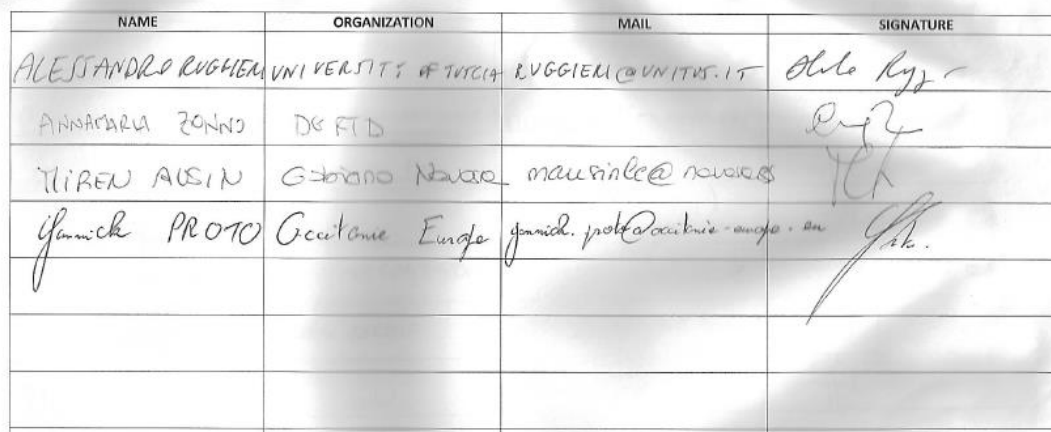 NAME ORGANIZATION MAIL SIGNATURE
ALESSANDRO RUGGIERI UNIVERSITY OF TUSCIA RUGGIERI@UNITUS.IT
ANNAMARIA ZONNO DG RTD
MIREN AUSIN Gobierno Navarra
Yannick PROTO Occitanie Europe yannick.proto@occitanie-europe.eu